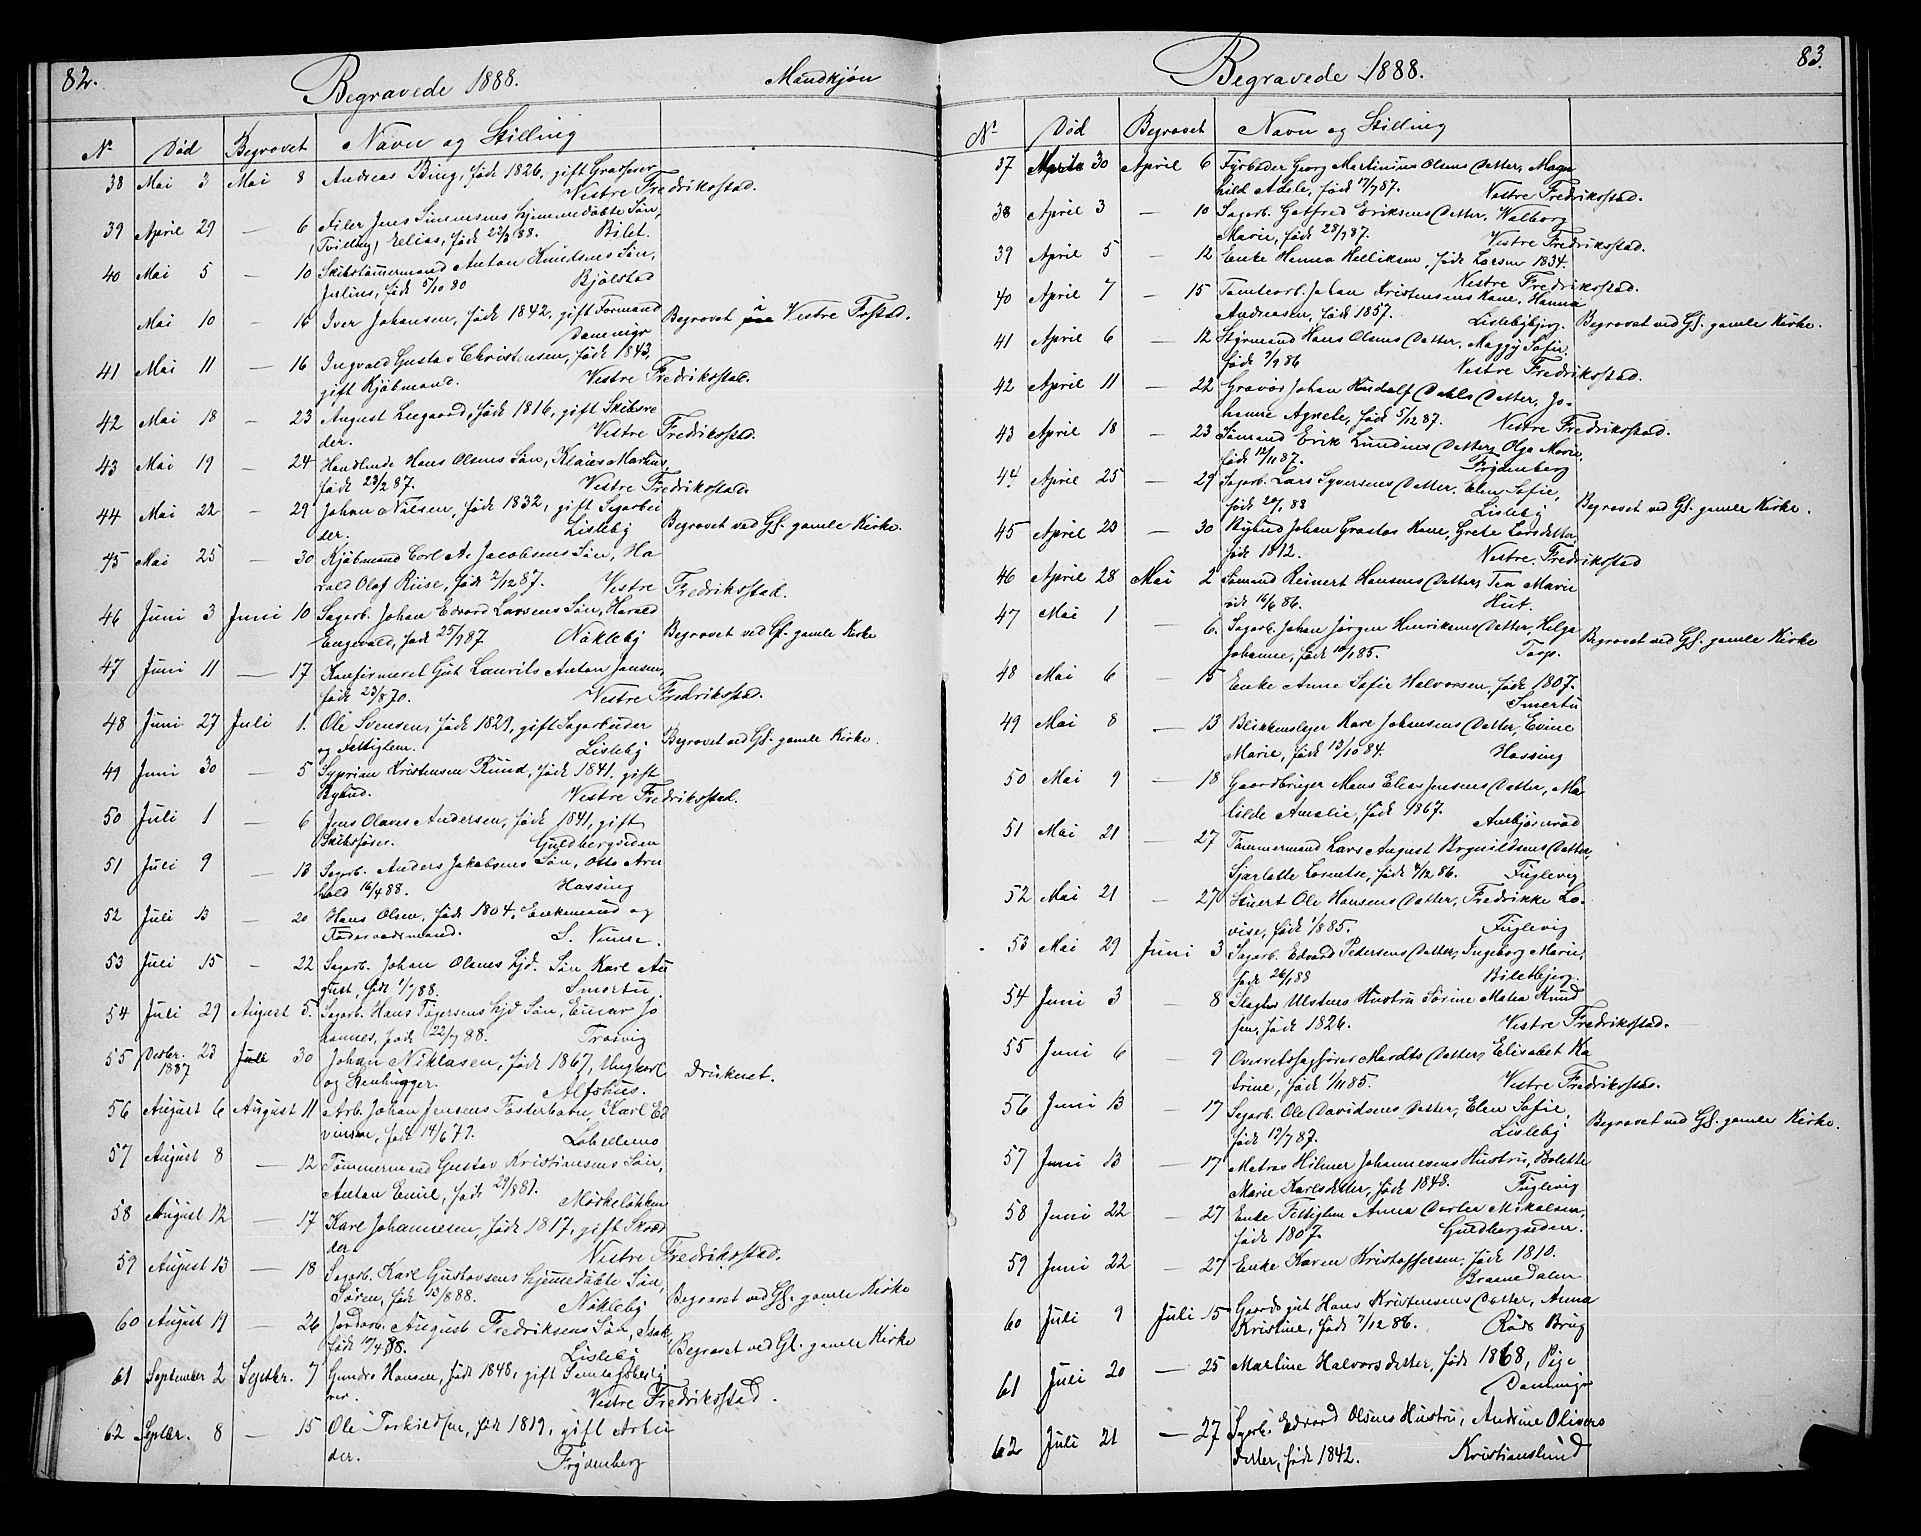 82.
Begravede 1888. Mandkjøn
No Død Begravet Navn og Stilling
38 Mai 3 Mai 8 Andreas Bing, født 1826, gift
Vestre Fredriksstad.
39 April 29 — 6 Filer Jens Simensens hjemmedøbte Søn,
Tvilling, Elias, født 22/3 88. Bilet.
40 Mai 5 — 10 Skibstømmermand Anton Knudsens Søn,
Julius, født 5/10 80 Bjølstad
Mai 10 — 16 Iver Johansen, født 1842, gift Formand Begravet i Vestre Frstad.
41 Mai 11 — 16 Ingvald Gustav Christensen, født 1843,
gift Kjøbmand. Vestre Fredriksstad.
42 Mai 18 — 23 August født 1816, gift Skibsre
der. Vestre Fredriksstad.
43 Mai 19 — 24 Handlende Hans Olsens Søn, Klaus Markus,
født 23/2 87. Vestre Fredriksstad.
44 Mai 22 — 29 Johan Nilsen, født 1832, gift Sagarbei
der. Lisleby Begravet ved Gl. gamle Kirke.
45 Mai 25 — 30 Kjøbmand Carl A. Jacobsens Søn, Ha
rald Olaf Riise, født 2/12 87. Vestre Fredriksstad.
46 Juni 3 Juni 10 Sagarb. Johan Edvard Larsens Søn, Harald
Engevald, født 25/9 87 Nøkleby Begravet ved Gl. gamle Kirke
47 Juni 11 — 17 Konfirmeret Gut Laurits Anton Jensen,
født 23/8 70. Vestre Fredriksstad.
48 Juni 27 Juli 1. Ole Svensen, født 1829, gift Sagarbeider
og Fattiglem. Lisleby Begravet ved Gl. gamle Kirke.
49 Juni 30 — 5 Syprian Kristensen Rund, født 1841, gift
Bylud. Vestre Fredriksstad.
50 Juli 1 — 6 Jens Olaves Andersen, født 1841, gift
Skibsfører. Guldbergsiden
51 Juli 9 — 13 Sagarb. Anders Jakobsens Søn, Otto Arn
hold 16/4 88. Hassing
52 Juli 13 — 20 Hans Olsen, født 1804, Enkemand og
Føderaadsmand. S. Numse.
53 Juli 15 — 22 Sagarb. Johan Olsens hjd. Søn Karl Au
gust, født 1/7 88. Smertu
54 Juli 29 August 5. Sagarb. Hans Tøgersens hjd Søn, Einar Jo
hannes, født 22/7 88. Trosvig
55 Decbr. 23 Juli 30 Johan Niklasen, født 1867, Ungkarl
1887 og Stenhugger. Alfshus. Druknet.
56 August 6 August 11 Arb. Johan Jensens Fosterbarn, Karl Ed
vinsen, født 14/6 77.
57 August 8 — 12 Tømmermand Gustav Kristiansens Søn,
Anton Emil, født 29/8 81. Mørkeløkken
58 August 12 — 17 Karl Johannesen, født 1817, gift Skræd
der Vestre Fredriksstad.
59 August 13 — 18 Sagarb. Karl Gustavsens hjemmedøbte Søn,
Søren, født 13/8 88. Nøkleby Begravet ved Gl. gamle Kirke
60 August 19 — 26 Jordarb. August Fredriksens Søn, Isak,
født 17/4 88. Lisleby Begravet ved Gl. gamle Kirke
61 September 2 Septbr. 7 Gunder Hansen, født 1848, gift
Vestre Fredriksstad.
62 Septbr. 8 — 15 Ole Torkildsen, født 1819, gift Arbei
der. Frydenberg
83.
Begravede 1888.
No Død Begravet Navn og Stilling
37 Marts 30 April 6 Fyrbøder Georg Martinius Olsens Datter, Magn
hild Adele, født 17/7 87. Vestre Fredriksstad.
38 April 3 — 10 Sagarb. Gotfred Eriksens Datter, Valborg
Marie, født 28/7 87. Vestre Fredriksstad.
39 April 5 — 12 Enke Hanna Kelliksen, født Larsen 1834.
Vestre Fredriksstad.
40 April 7 — 15 Tomtearb. Johan Kristensens Kone, Hanna
Andreasen, født 1857. Lislebybjerg. Begravet ved Gl. gamle Kirke.
41 April 6 — 12 Styrmand Hans Olsens Datter, Maggy Sofie,
født 7/9 86 Vestre Fredriksstad.
42 April 11 — 22 Gravør Johan Rudolf Dahls Datter, Jo-
hanne Agnete, født 5/12 87. Vestre Fredriksstad.
43 April 18 — 23 Sømand Erik Lundins Datter Olga Marie,
født 12/11 87. Frydenberg
44 April 25 — 29 Sagarb. Lars Syversens Datter, Elen Sofie,
født 20/1 88 Lisleby Begravet ved Gl. gamle Kirke.
45 April 23 — 30 Bylud Johan Grastas Kone, Grete Larsdatter
født 1812. Vestre Fredriksstad
46 April 28 Mai 2 Sømand Reinert Hansens Datter, Tea Marie
født 16/6 86. Hut.
47 Mai 1 — 6. Sagarb. Johan Jørgen Henriksens Datter Helga
Johanne, født 10/1 85. Torp. Begravet ved Gl. gamle Kirke
48 Mai 6 — 15 Enke Anne Sofie Halvorsen, født 1807.
Smertu
49 Mai 8 — 13 Blikkenslager Kare Johansens Datter, Evine
Marie, født 13/10 84. Hassing
50 Mai 9 — 18 Gaardbruger Mons Elias Jensens Datter, Ma
tilde Amalie, født 1867. Ambjørnrød
51 Mai 21 — 27 Tømmermand Lars August Brynildsens Datter,
Sjarlotte Lorentse, født 4/12 86. Fuglevig
52 Mai 21 — 27 Stuert Ole Hansens Datter, Fredrikke Lo-
vise, født 1/1 85. Fuglevig
53 Mai 29 Juni 3 Sagarb. Edvard Pedersens Datter, Ingeborg Marie,
født 26/1 88 Biletbjerg.
54 Juni 3 — 8 Slagter Ulstens Hustru Sørine Matea Knud
sen, født 1826. Vestre Fredriksstad.
55 Juni 6 — 9 Overretssagfører Mardts Datter, Elisabet Ka
trine, født 1/11 85. Vestre Fredriksstad.
56 Juni 13 — 17 Sagarb. Ole Davidsens Datter, Elen Sofie,
født 19/7 87. Lisleby Begravet ved Gl. gamle Kirke.
57 Juni 13 — 17 Matros Hilmer Johannesens Hustru, Bolette
Marie Karlsdatter, født 1848. Fuglevig
58 Juni 22 — 27 Enke Fattiglem Anna Dorter Mikalsen,
født 1807. Guldbergsiden.
59 Juni 22 — 27 Enke Karen Kristoffersen, født 1810.
Bramedalen
60 Juli 9 Juli 15 Gaardsgut Hans Kristensens Datter, Anna
Kristine, født 7/12 86. Røds Brug
61 Juli 20 — 25 Martine Halvorsdatter, født 1868, Pige
62 Juli 21 — 27 Sagarb. Edvard Olsens Hustru, Andrine Olivers
datter, født 1842. Kristianslund